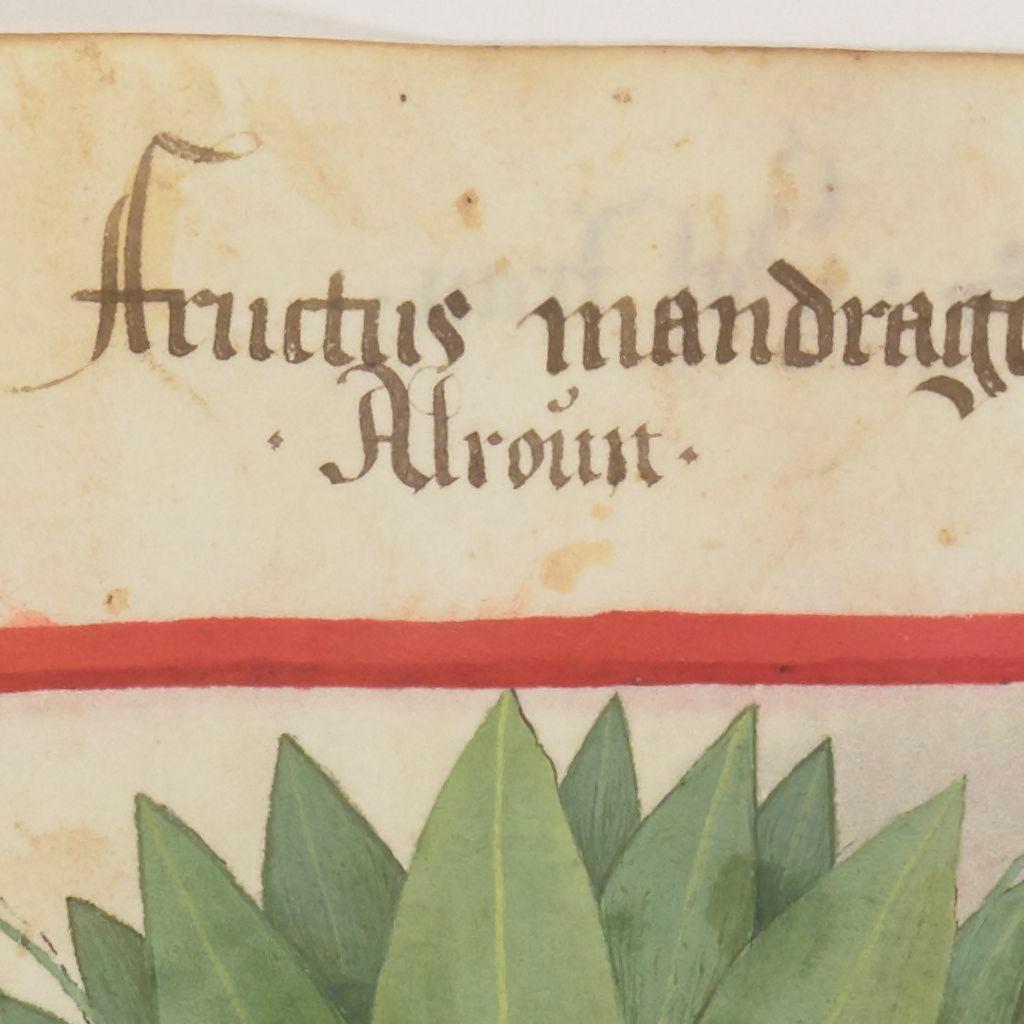 Fructus mandrago
· Alroůn ·